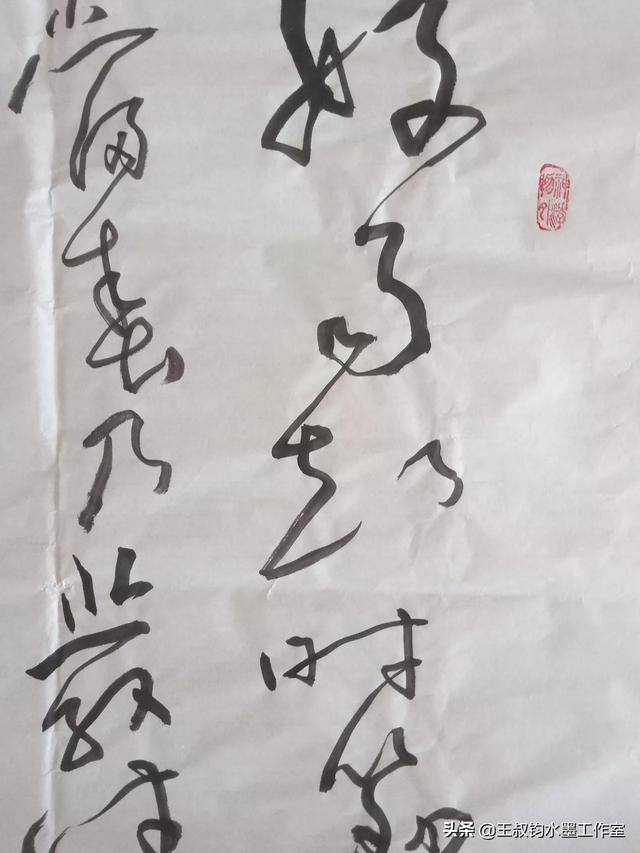 好雨知时節
當春乃發生
头条 @王叔钧水墨工作室